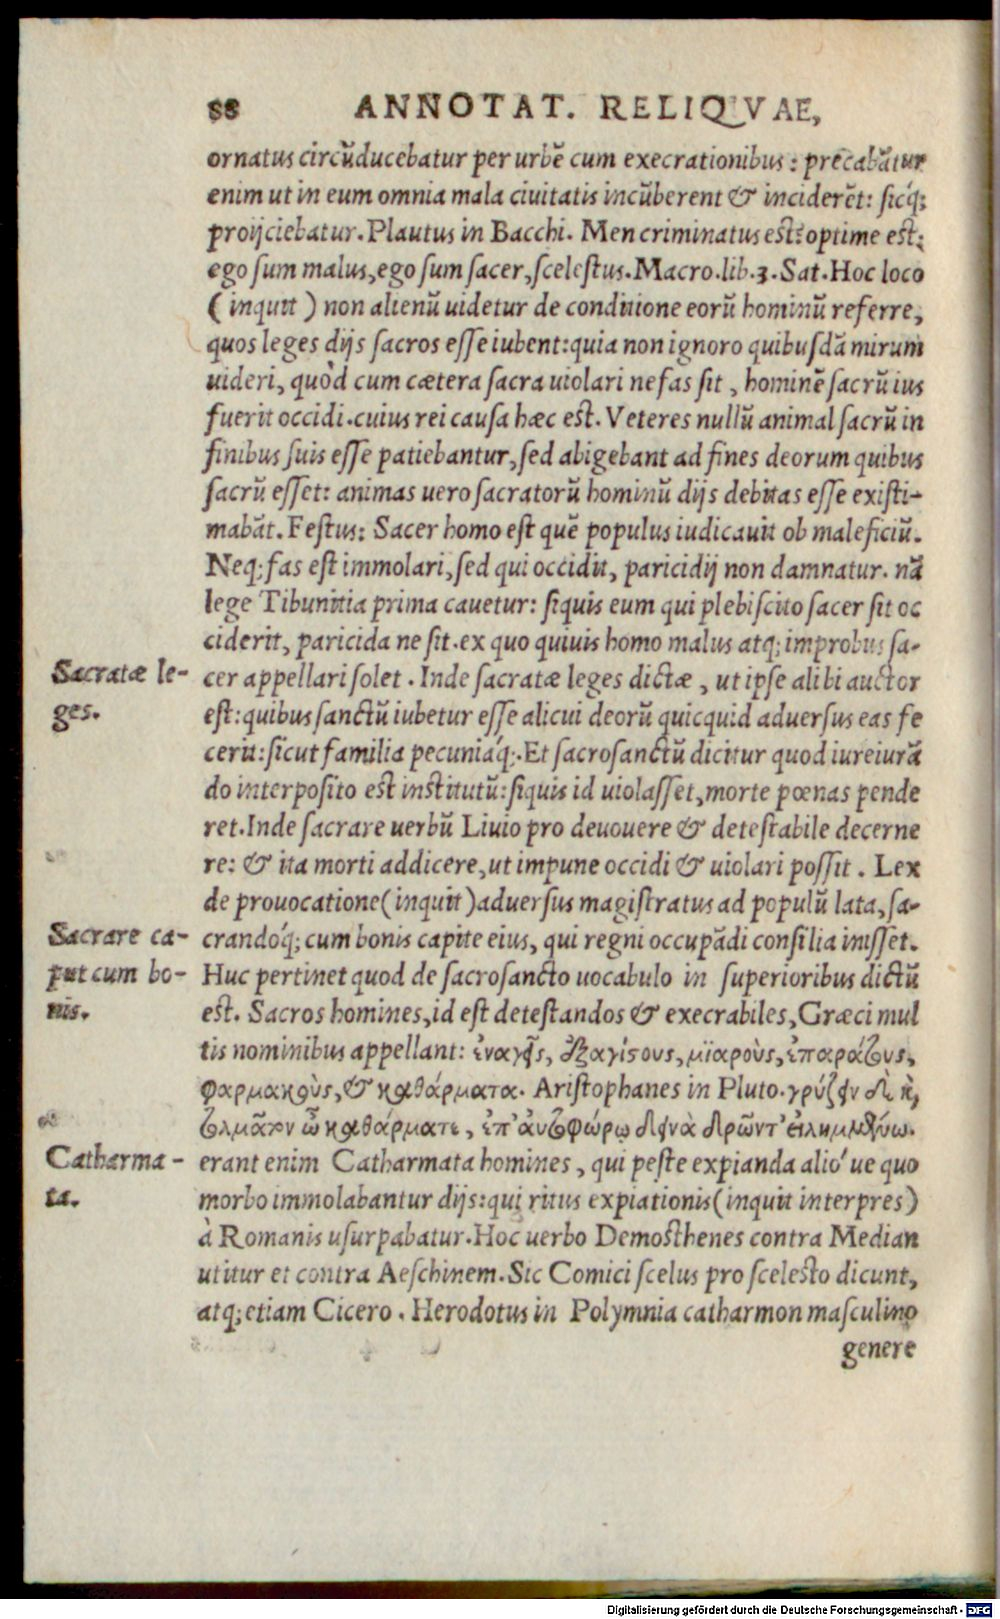 88 ANNOTAT. RELIQVAE,
ornatus circũducebatur per urbẽ cum execrationibus: precabãtur
enim ut in eum omnia mala ciuitatis incũberent & inciderẽt: sicq́;
proijciebatur. Plautus in Bacchi. Men criminatus est: optime est:
ego sum malus, ego sum sacer, scelestus. Macro. lib. 3. Sat. Hoc loco
(inquit) non alienũ uidetur de conditione eorũ hominũ referre,
quos leges dijs sacros esse iubent: quia non ignoro quibusdã mirum
uideri, quòd cum cætera sacra uiolari nefas sit, hominẽ sacrũ ius
fuerit occidi. cuius rei causa hæc est. Veteres nullũ animal sacrũ in
finibus suis esse patiebantur, sed abigebant ad fines deorum quibus
sacrũ esset: animas uero sacratorũ hominũ dijs debitas esse existi-
mabãt. Festus: Sacer homo est quẽ populus iudicauit ob maleficiũ.
Neq; fas est immolari, sed qui occidit, paricidij non damnatur. nã
lege Tibunitia prima cauetur: siquis eum qui plebiscito sacer sit oc
ciderit, paricida ne sit. ex quo quiuis homo malus atq; improbus sa-
Sacratæ le-
ges.
cer appellari solet. Inde sacratæ leges dictæ, ut ipse alibi auctor
est: quibus sanctũ iubetur esse alicui deorũ quicquid aduersus eas fe
cerit: sicut familia pecuniáq;. Et sacrosanctũ dicitur quod iureiurã
do interposito est institutũ: siquis id uiolasset, morte pœnas pende
ret. Inde sacrare uerbũ Liuio pro deuouere & detestabile decerne
re: & ita morti addicere, ut impune occidi & uiolari possit. Lex
de prouocatione (inquit) aduersus magistratus ad populũ lata, sa-
Sacrare ca-
put cum bo-
nis.
crandóq; cum bonis capite eius, qui regni occupãdi consilia inisset.
Huc pertinet quod de sacrosancto uocabulo in superioribus dictũ
est. Sacros homines, id est detestandos & execrabiles, Græci mul
tis nominibus appellant: ἐναγεῖς, ἐξαγίστους, μιαροὺς, ἐπαράτους,
φαρμακοὺς, & καθάρματα. Aristophanes in Pluto. γρύζειν δὲ καὶ
τολμᾶτον ὦ καθάρματε, ἐπ' αὐτοφώρῳ δεινὰ δρῶντ' εἰλημμένω.
Catharma-
ta.
erant enim Catharmata homines, qui peste expianda alió ue quo
morbo immolabantur dijs: qui ritus expiationis (inquit interpres)
à Romanis usurpabatur. Hoc uerbo Demosthenes contra Median
utitur et contra Aeschinem. Sic Comici scelus pro scelesto dicunt,
atq; etiam Cicero. Herodotus in Polymnia catharmon masculino
genere
Digitalisierung gefördert durch die Deutsche Forschungsgemeinschaft - DFG